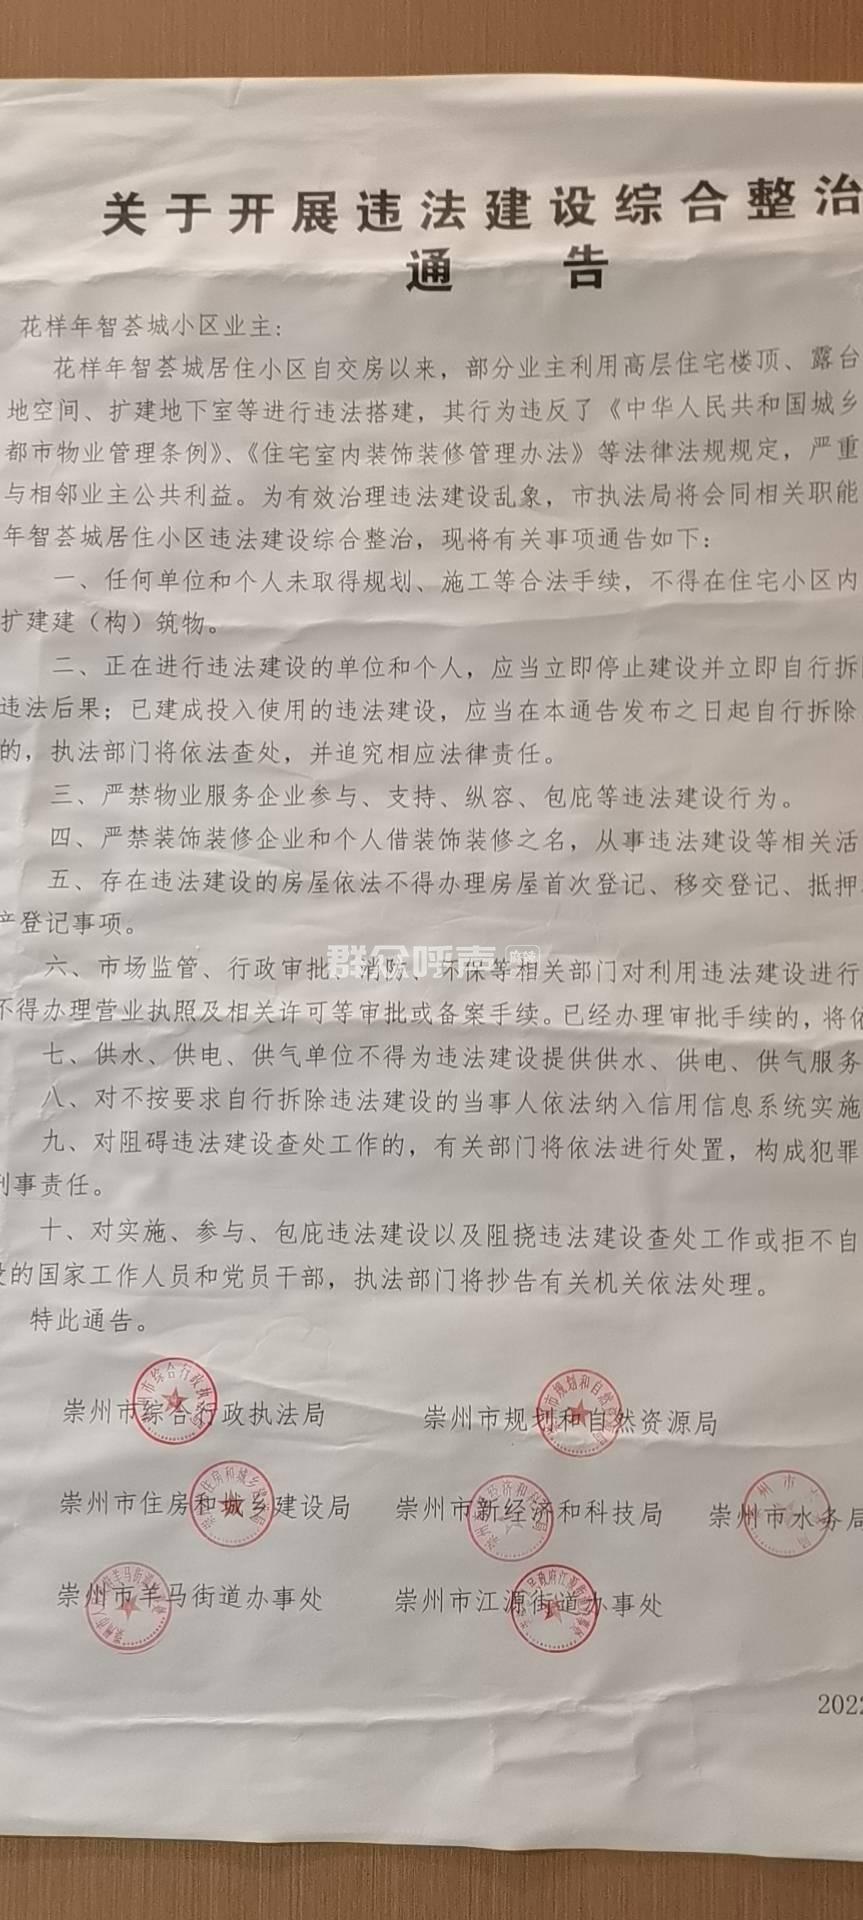 关于开展违法建设综合整治
通告
花样年智荟城小区业主：
花样年智荟城居住小区自交房以来，部分业主利用高层住宅楼顶、露台
地空间、扩建地下室等进行违法搭建，其行为违反了《中华人民共和国城乡
都市物业管理条例》、《住宅室内装饰装修管理办法》等法律法规规定，严重
与相邻业主公共利益。为有效治理违法建设乱象，市执法局将会同相关职能
年智荟城居住小区违法建设综合整治，现将有关事项通告如下：
一、任何单位和个人未取得规划、施工等合法手续，不得在住宅小区内
扩建建（构）筑物。
二、正在进行违法建设的单位和个人，应当立即停止建设并立即自行拆
违法后果；已建成投入使用的违法建设，应当在本通告发布之日起自行拆除
的，执法部门将依法查处，并追究相应法律责任。
三、严禁物业服务企业参与、支持、纵容、包庇等违法建设行为。
四、严禁装饰装修企业和个人借装饰装修之名，从事违法建设等相关活
五、存在违法建设的房屋依法不得办理房屋首次登记、移交登记、抵押
产登记事项。
六、市场监管、行政审批、消防、环保等相关部门对利用违法建设进行
不得办理营业执照及相关许可等审批或备案手续。已经办理审批手续的，将依
七、供水、供电、供气单位不得为违法建设提供供水、供电、供气服务
八、对不按要求自行拆除违法建设的当事人依法纳入信用信息系统实施
九、对阻碍违法建设查处工作的，有关部门将依法进行处置，构成犯罪
刑事责任。
十、对实施、参与、包庇违法建设以及阻挠违法建设查处工作或拒不自
的国家工作人员和党员干部，执法部门将抄告有关机关依法处理。
特此通告。
崇州市综合行政执法局 崇州市规划和自然资源局
崇州市住房和城乡建设局 崇州市新经济和科技局 崇州市水务局
崇州市羊马街道办事处 崇州市江源街道办事处
2022
群众呼声